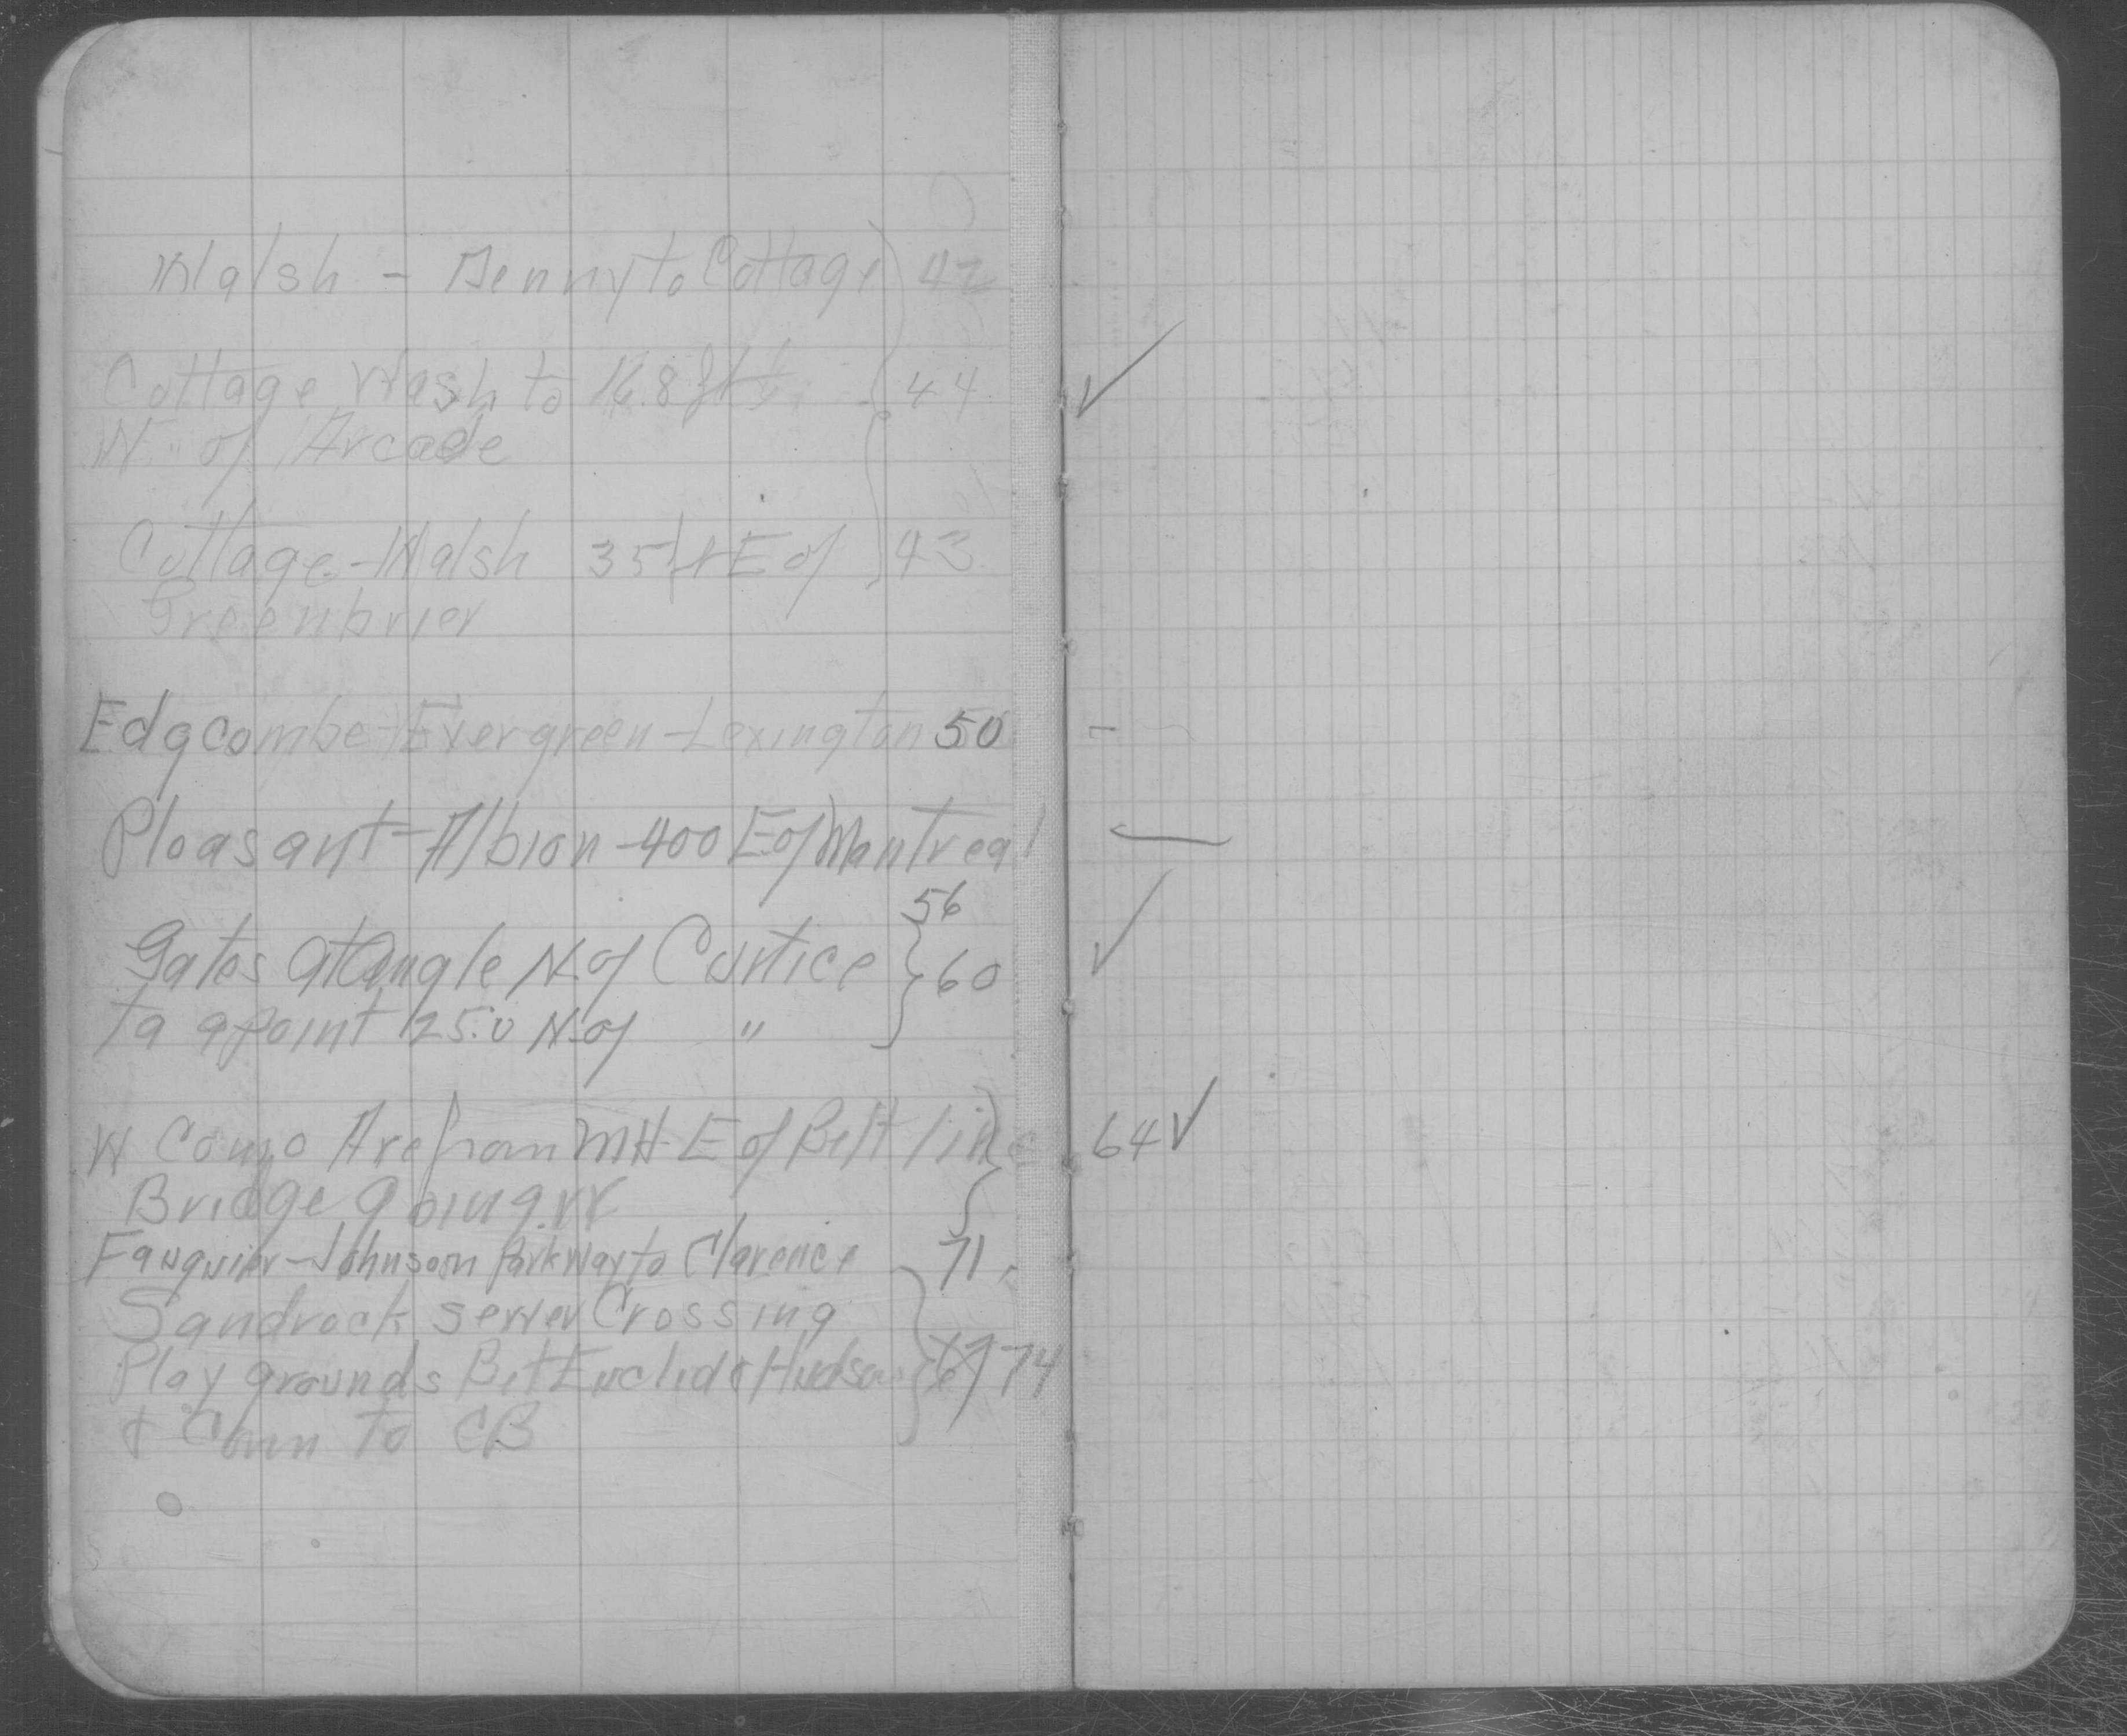 Walsh - Denny to Cottage 42
Cottage Wash to 16.8 ft 44 ✓
N. of Arcade
Cottage - Walsh 35 ft E of 43
Greenbrier
Edgcombe - Evergreen - Lexington 50 -
Pleasant - Albion - 400 E of Montreal —
56
Gates at Angle N. of Curtice 60 ✓
to a point 25.0 N. of "
W Como Ave from MH E of Belt line 64 ✓
Bridge going
Fauquier - Johnson Parkway to Clarence 71
Sandrock sewer Crossing
Play grounds Bet Euclid & Hudson 74
& Conn to CB